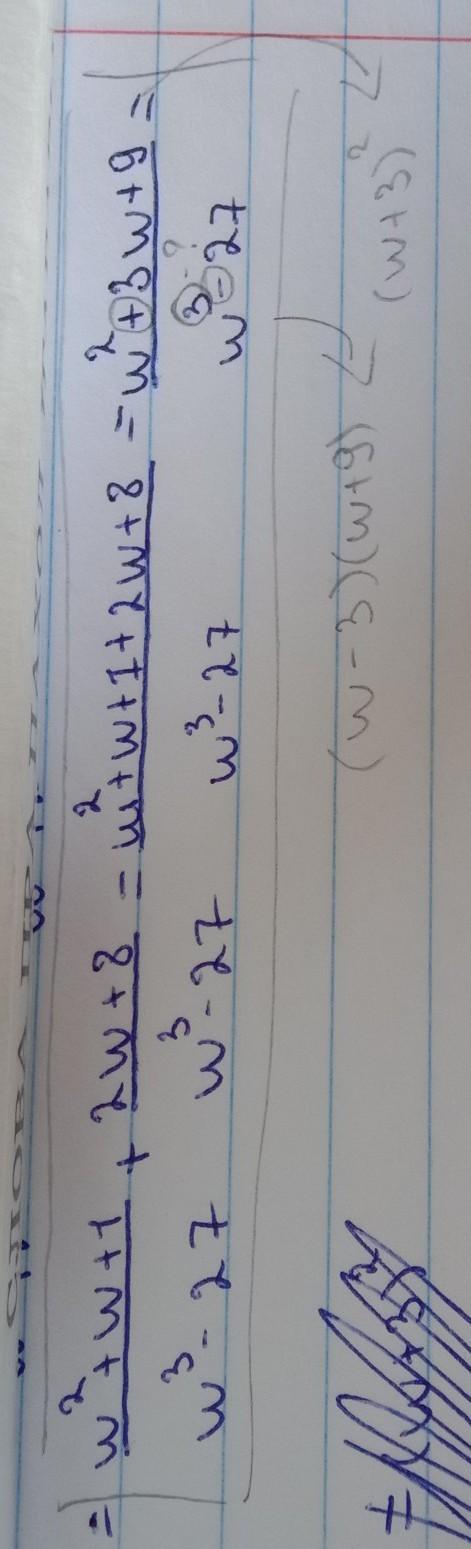 = (w² + w + 1)/(w³ - 27) + (2w + 8)/(w³ - 27) = (w² + w + 1 + 2w + 8)/(w³ - 27) = (w² + 3w + 9)/(w³ - 27) =
?
(w - 3)(w + 9) < (w + 3)² <